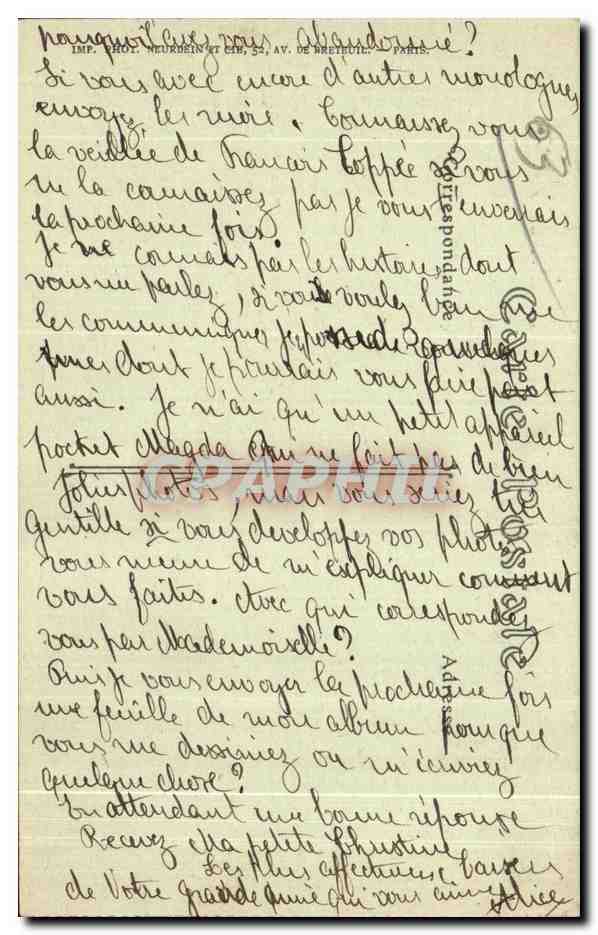 pourquoi l'avez vous abandonné?
IMP. PHOT. NEURDEIN ET CIE, 52, AV. DE BRETEUIL. — PARIS.
Si vous avez encore d'autres monologues
envoyez les moi. Connaissez vous
la veillée de François Coppée si vous
ne la connaissez pas je vous l'enverrais
la prochaine fois.
Je ne connais pas les histoires dont
vous me parlez, si vous voulez bien me
les communiquer je possède
unes dont je pourrais vous faire part
aussi. Je n'ai qu'un petit appareil
pocket Magda qui ne fait pas de bien
jolies photos, mais vous seriez très
gentille si vous developpez vos photos
vous meme de m'expliquer comment
vous faites. Avec qui correspondez
vous par Mademoiselle?
Puis je vous envoyer la prochaine fois
une feuille de mon album pour que
vous me dessiniez ou m'écriviez
quelque chose?
En attendant une bonne réponse
Recevez Ma petite Christine
Les plus affectueux baisers
de Votre grande amie qui vous aime Alice
63
Carte Postale
Correspondance
Adresse
CPAPHIL